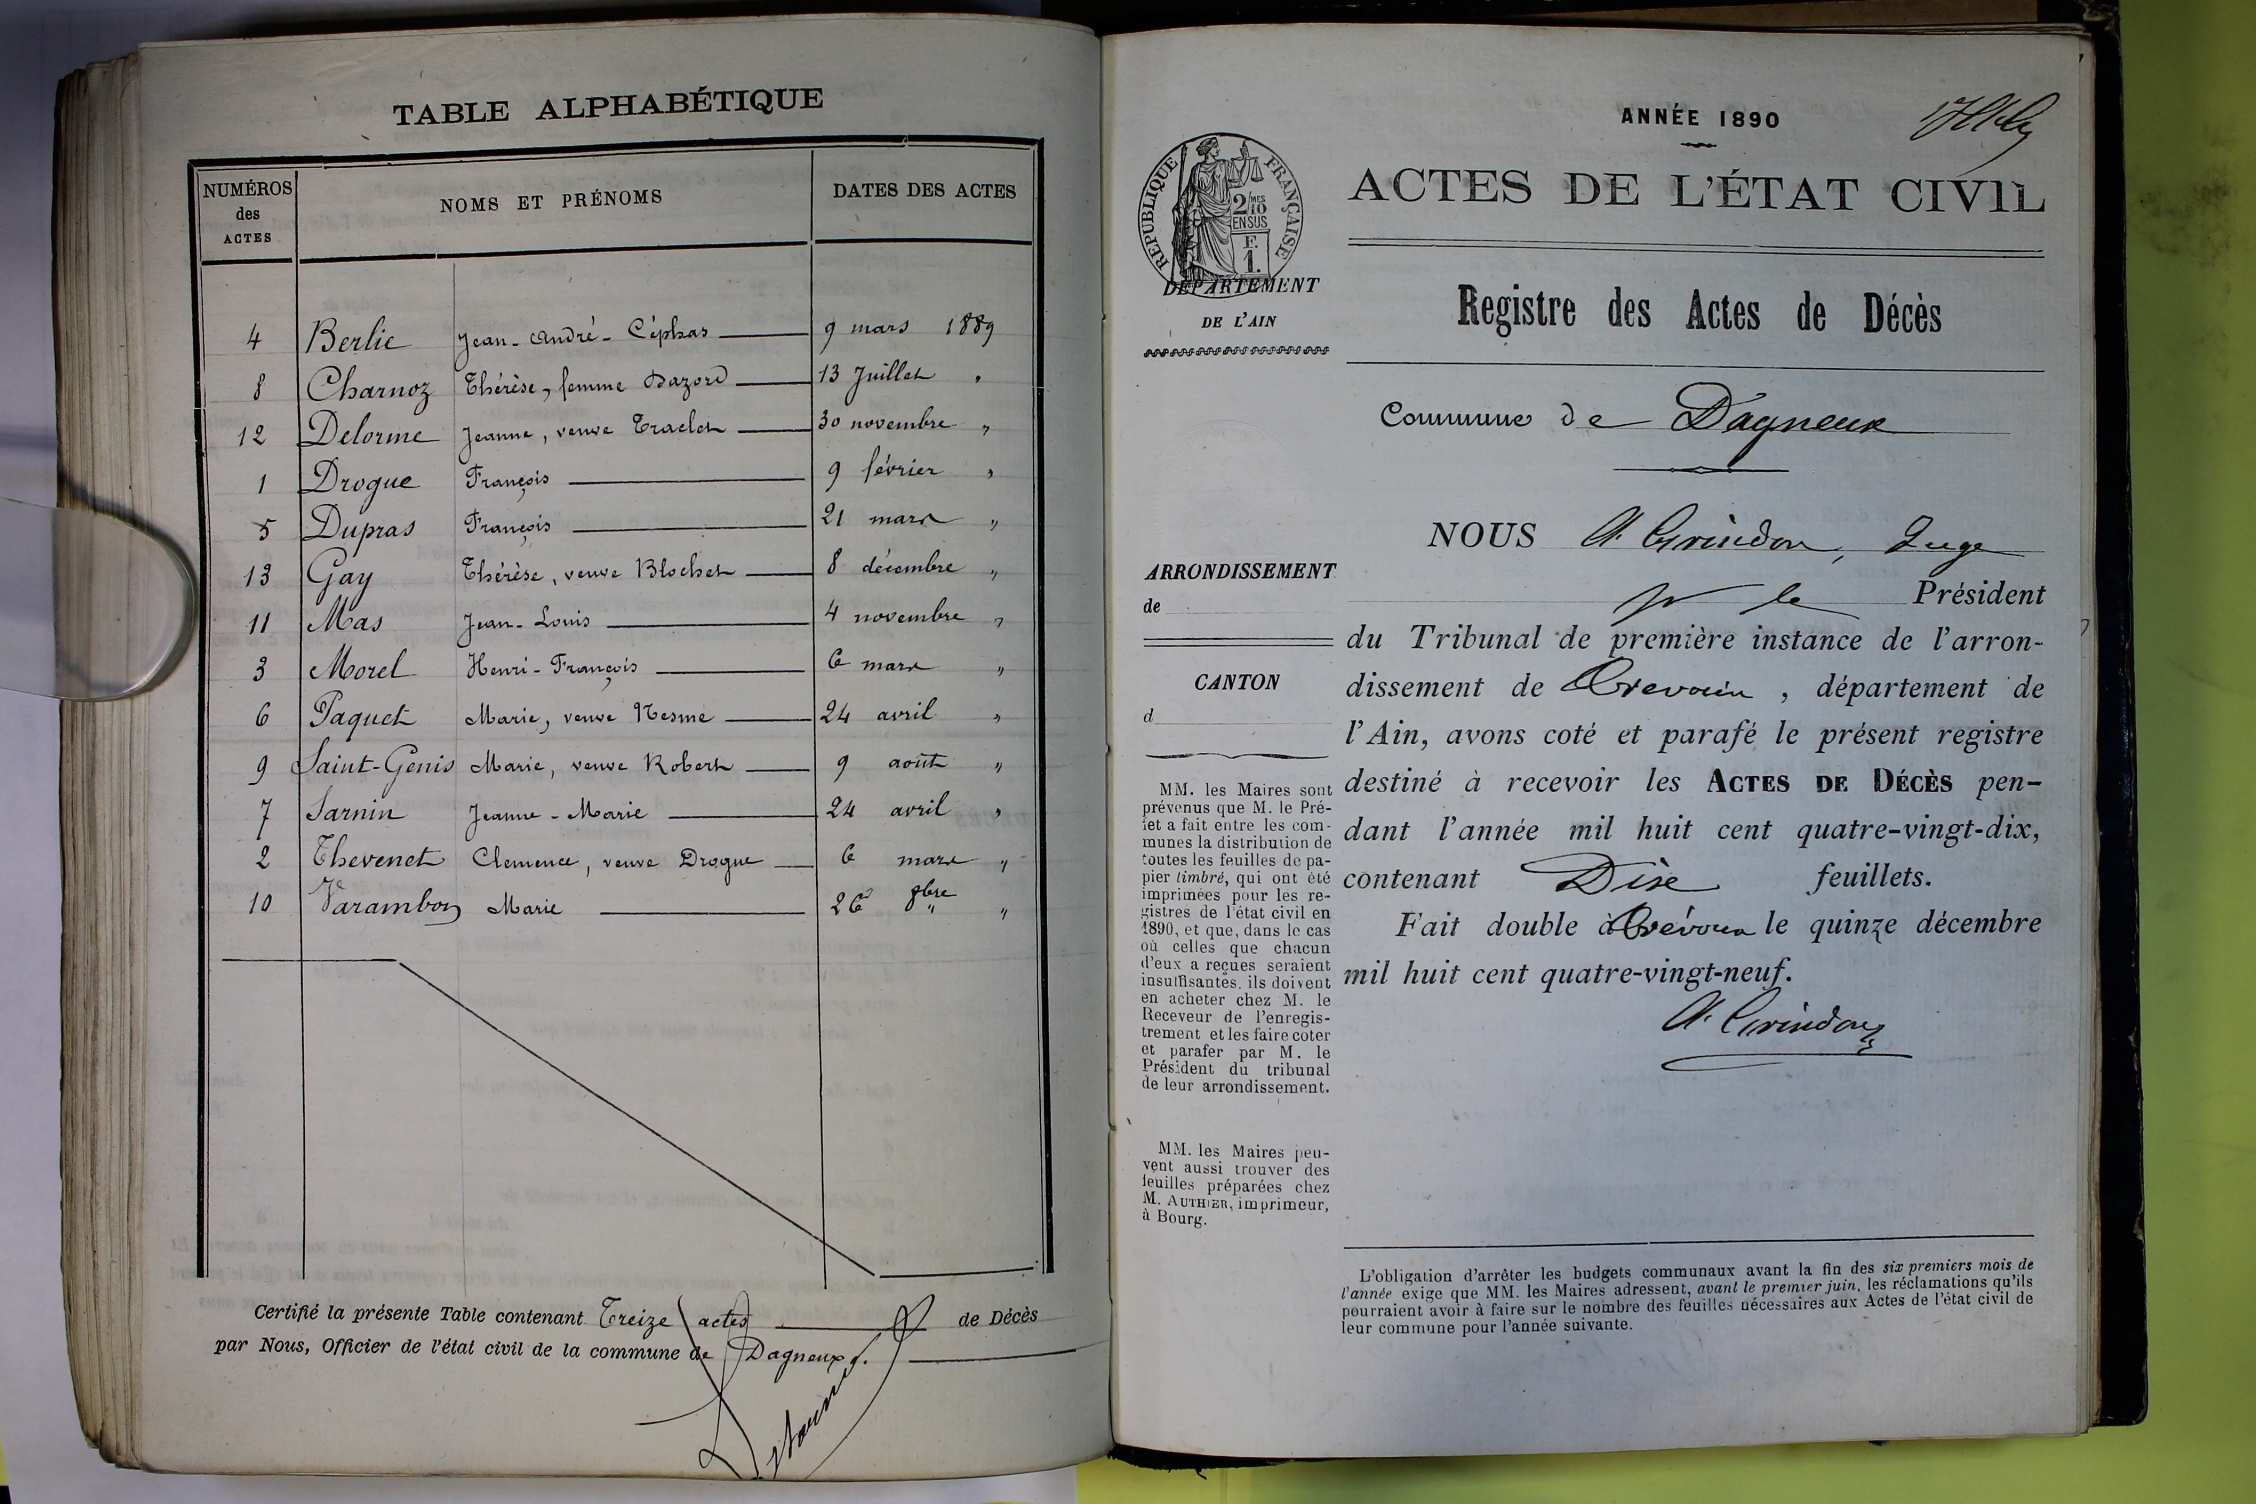 TABLE ALPHABÉTIQUE
NUMÉROS
des
ACTES
NOMS ET PRÉNOMS
DATES DES ACTES
4 Berlie Jean-André-Céphas 9 mars 1889
8 Charnoz Thérèse, femme Dazord 13 Juillet "
12 Delorme Jeanne, veuve Traclet 30 novembre "
1 Drogue François 9 février "
5 Dupras François 21 mars "
13 Gay Thérèse, veuve Blochet 8 décembre "
11 Mas Jean-Louis 4 novembre "
3 Morel Henri-François 6 mars "
6 Paquet Marie, veuve Nesme 24 avril "
9 Saint-Genis Marie, veuve Robert 9 août "
7 Sarnin Jeanne-Marie 24 avril "
2 Thevenet Clemence, veuve Drogue 6 mars "
10 Varambon Marie 26 8bre "
Certifié la présente Table contenant Treize actes de Décès
par Nous, Officier de l'état civil de la commune de Dagneux.
ANNÉE 1890
ACTES DE L'ÉTAT CIVIL
RÉPUBLIQUE FRANÇAISE
2/10MES
EN SUS
F.
1.
DÉPARTEMENT
DE L'AIN
Registre des Actes de Décès
Commune de Dagneux
NOUS A. Grindon, Juge
pr le Président
du Tribunal de première instance de l'arron-
dissement de Trévoux, département de
l'Ain, avons coté et parafé le présent registre
destiné à recevoir les ACTES DE DÉCÈS pen-
dant l'année mil huit cent quatre-vingt-dix,
contenant Dix feuillets.
Fait double à Trévoux le quinze décembre
mil huit cent quatre-vingt-neuf.
A. Grindon
ARRONDISSEMENT
de
CANTON
d
MM. les Maires sont
prévenus que M. le Pré-
fet a fait entre les com-
munes la distribution de
toutes les feuilles de pa-
pier timbré, qui ont été
imprimées pour les re-
gistres de l'état civil en
1890, et que, dans le cas
où celles que chacun
d'eux a reçues seraient
insuffisantes, ils doivent
en acheter chez M. le
Receveur de l'enregis-
trement et les faire coter
et parafer par M. le
Président du tribunal
de leur arrondissement.
MM. les Maires peu-
vent aussi trouver des
feuilles préparées chez
M. AUTHIER, imprimeur,
à Bourg.
L'obligation d'arrêter les budgets communaux avant la fin des six premiers mois de
l'année exige que MM. les Maires adressent, avant le premier juin, les réclamations qu'ils
pourraient avoir à faire sur le nombre des feuilles nécessaires aux Actes de l'état civil de
leur commune pour l'année suivante.